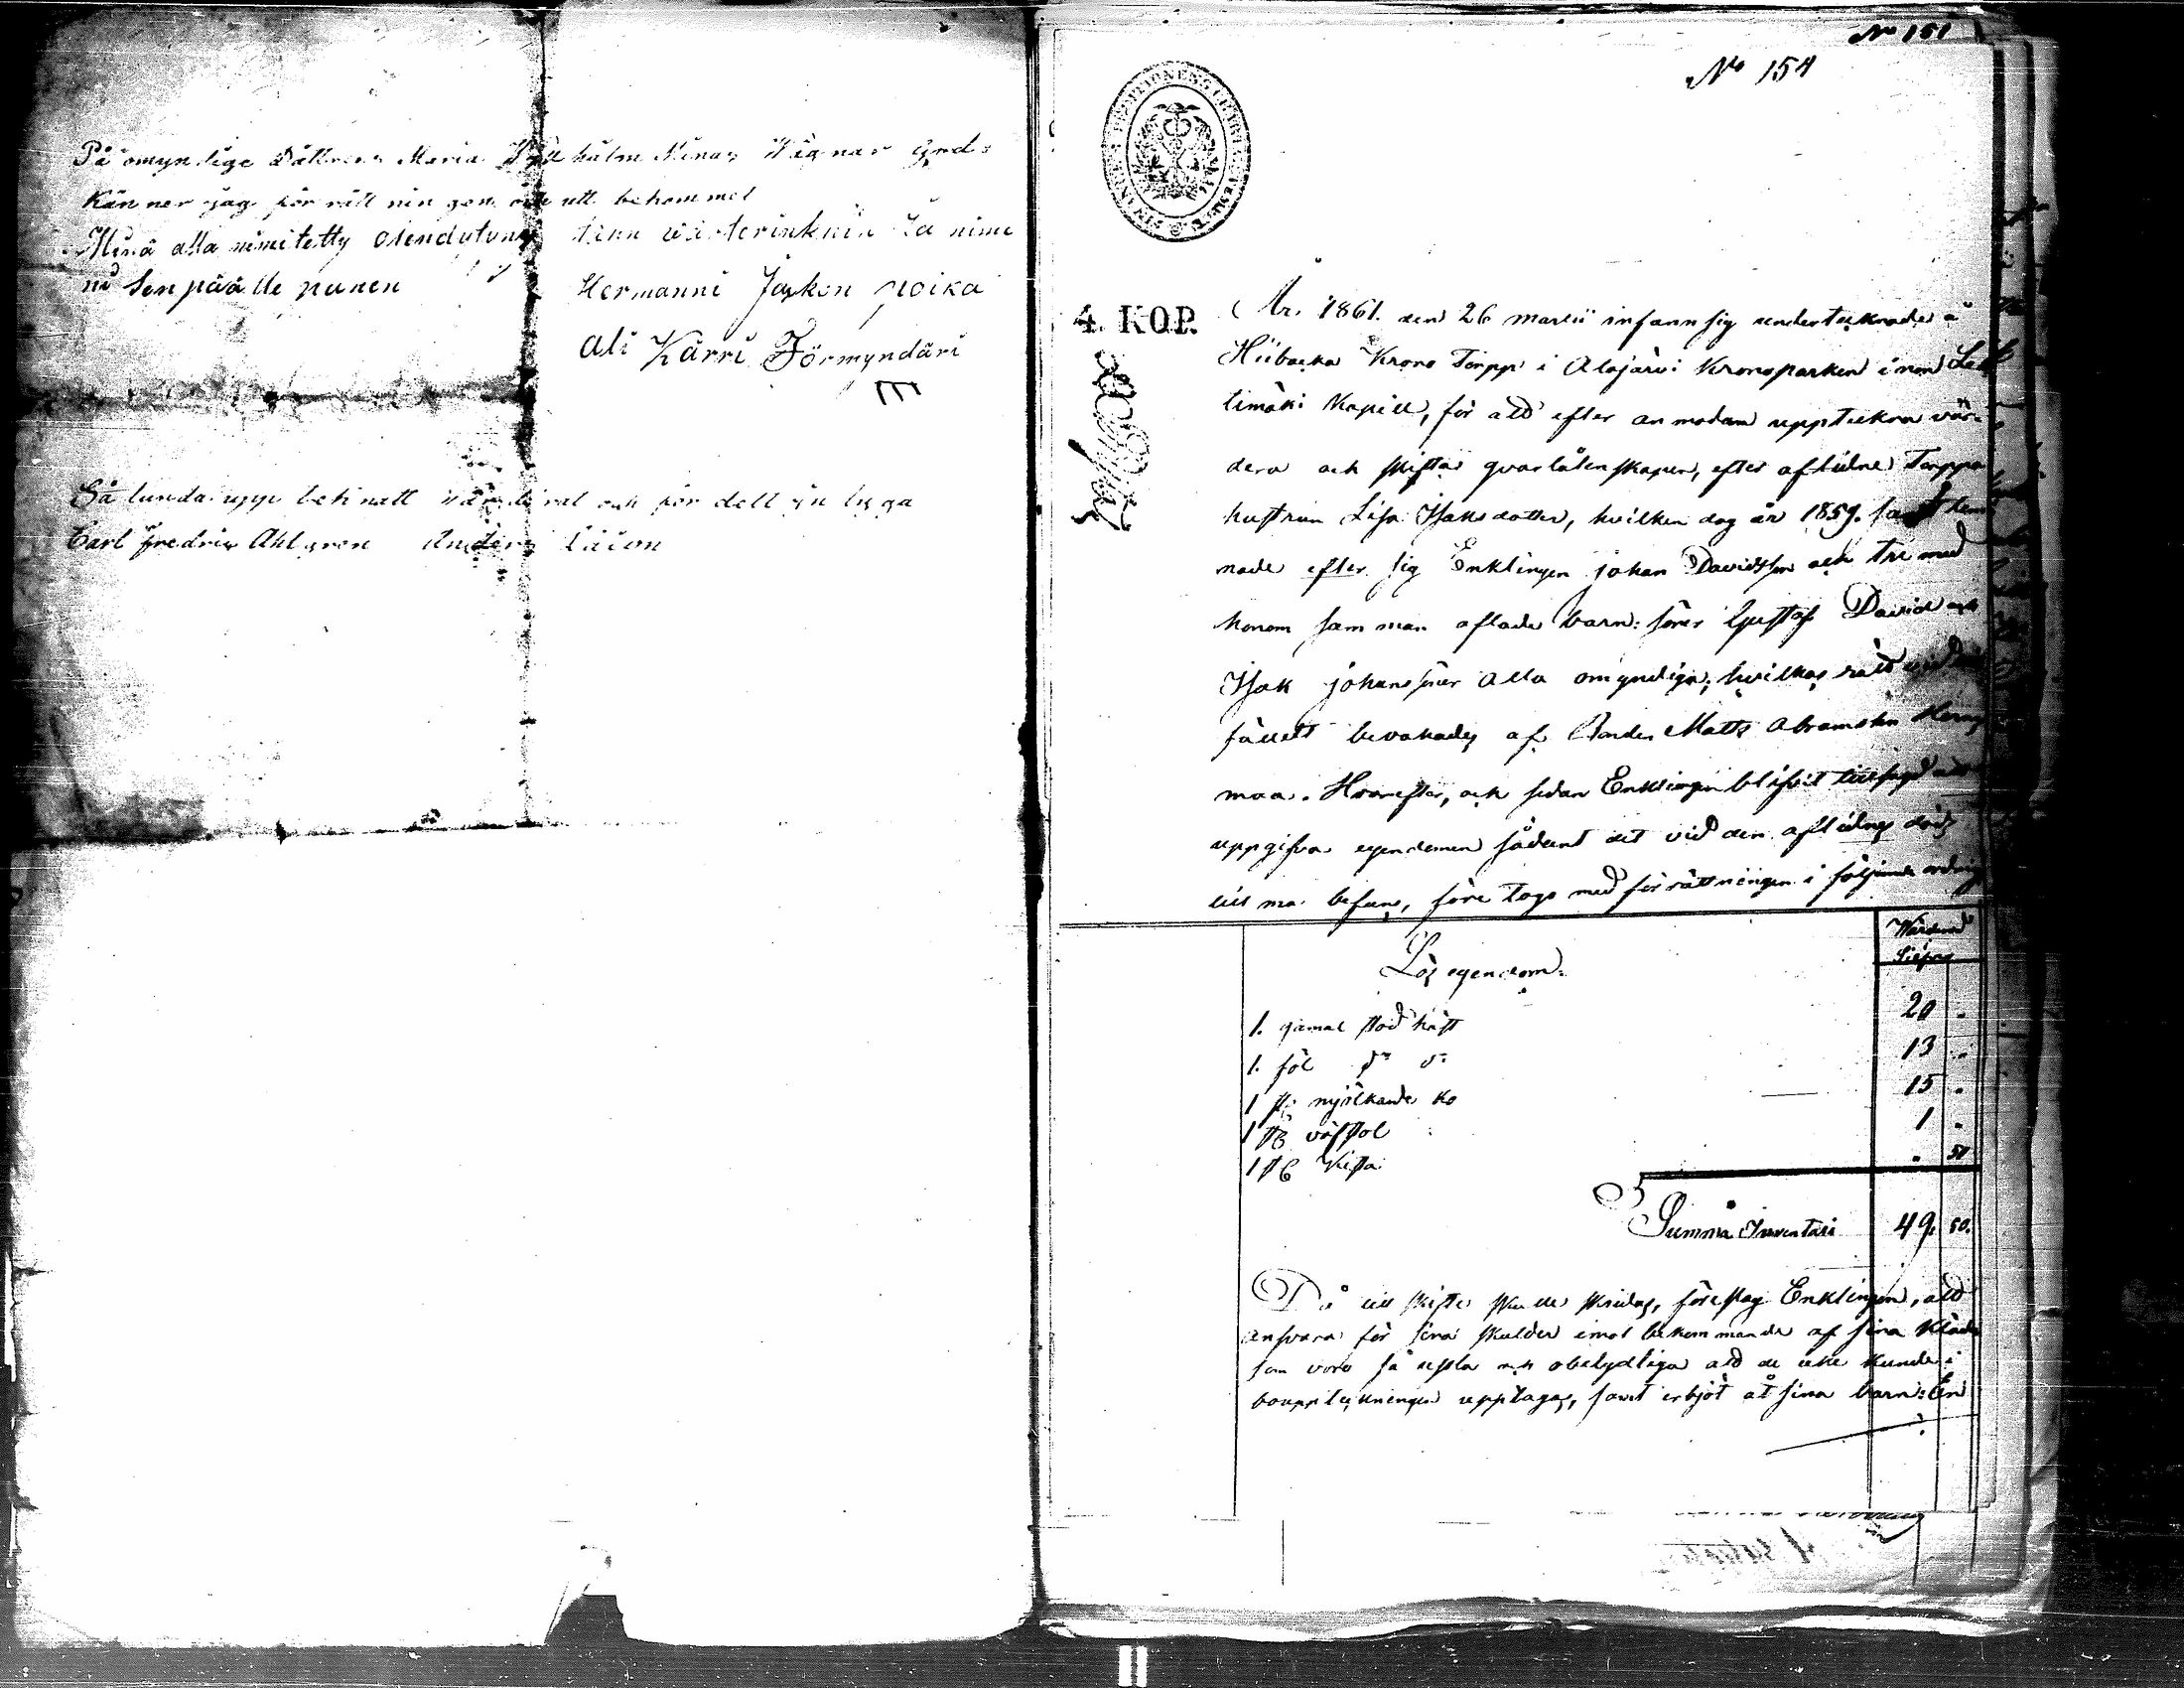 På omyndige Dåttrens Maria Wilhälmminas Wägnar ged:
känner jag för rätt ningen
Minä alla nimitetty olen dytyväj tään
ni Sen päälle panen
Hermanni Jaskon poika
Ali Kärri Förmyndäri
Så lunda upp teknatt värderat och för dell
Carl fredrik Ahlgren Anders
No 151
No 154
4. KOP.
År 1861. den 26 martii infann sig undertecknade å
Hiibacka Krono Torpp i Alajärvi Kronoparken inom Leh
timäki Kapell, för att efter anmodan uppteckna vär-
dera och skifta qvarlåtenskapen, efter aflidne Torppa
hustrun Lisa Isaksdotter, hvilken dog år 1859. samt lem
nade efter sig Enklingen johan Davidsson och tre med
honom samman aflade barn: söner Gustaf David och
Isak johanssöner alla omyndiga; hvilkas rätt vid
fället bevakades af Bonden Matts Abramsson
maa. Hvarefter, och sedan Enklingen blifvit tillsagd att
uppgifva egendomen sådant det vid den aflidnes död
till ma befans, före togs med förrättningen i följande ordning
Wärderad
Silfver
Lös egendom:
1. gamal stod häst 20 "
1. föl do do 13 "
1 st: mjölkande ko 15 "
1 st väfstol 1 "
1 st Kista " 50
Summa Inventari 49. 50.
Då till skifte skulle skridas, föreslog Enklingen, att
ansvara för sina skulder emot bekommande af sina Kläder
som voro så ussla och obetydliga att de icke kunde i
bouppteckningen upptagas, samt erbjöt åt sina barn: En